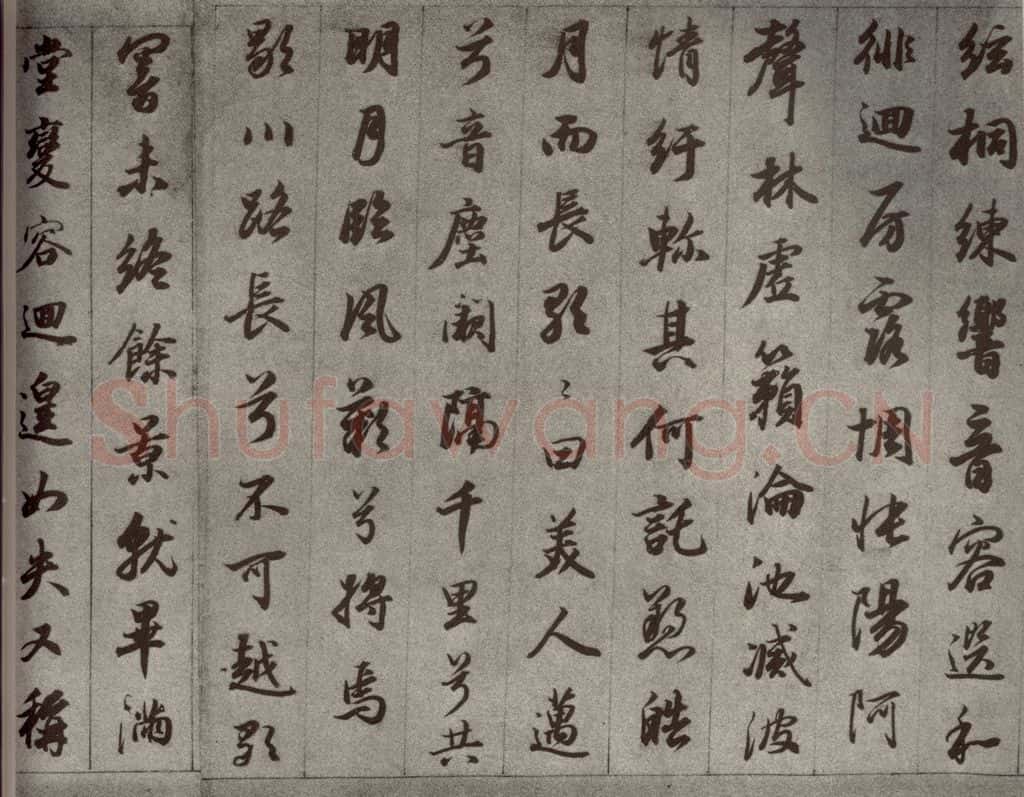 絃桐練響音容選和
徘迴房露惆悵陽阿
聲林虛籟淪池滅波
情紆軫其何託愬皓
月而長歌〻曰美人邁
兮音塵闕隔千里兮共
明月臨風歎兮將焉
歇川路長兮不可越歌
響未終餘景就畢滿
堂變容迴遑如失又稱
Shufawang.CN